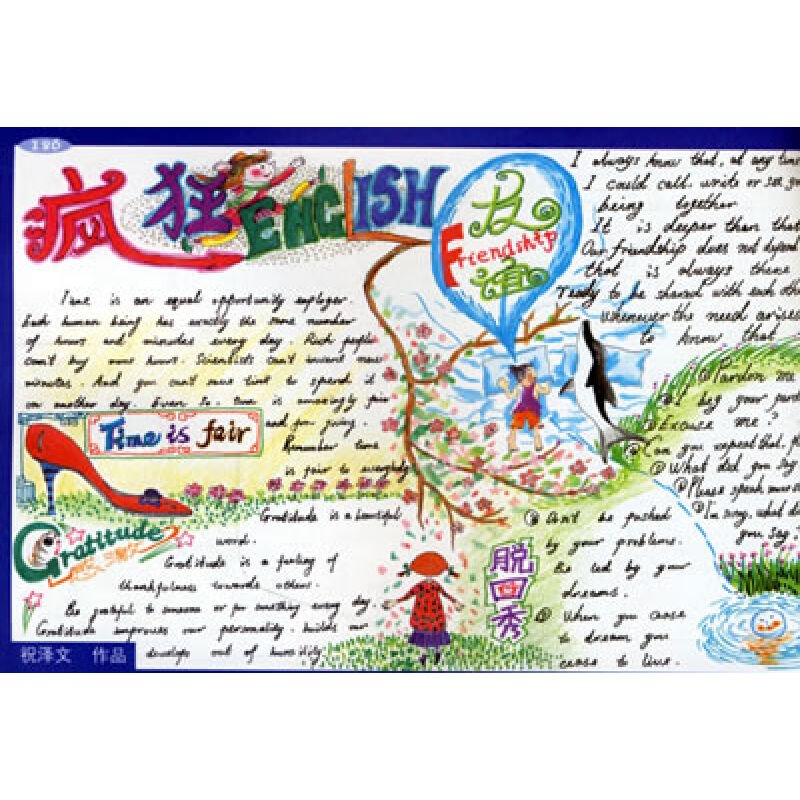 180
疯狂ENGLISH
友谊
Friendship
I always know that, at any time
I could call, write or see you
being together
It is deeper than that
Our friendship does not depend
that is always there
ready to be shared with each other
whenever the need arises
to know that
Time is an equal opportunity employer.
Each human being has exactly the same number
of hours and minutes every day. Rich people
can't buy more hours. Scientists can't invent new
minutes. And you can't save time to spend it
on another day. Even so, time is amazingly fair
and for giving.
Remember time
is fair to everybody
Time is fair
Pardon me
I beg your
Excuse me?
Can you repeat that,
What did you say
Please speak
I'm sorry, what do
you say?
Gratitude
Gratitude is a beautiful
word.
Gratitude is a feeling of
thankfulness towards others.
Be grateful to someone or for something every day.
Gratitude improves our personality, builds our
develops out of humility
脱口秀
① Don't be pushed
by your problems.
Be led by your
dreams.
② When you cease
to dream you
cease to live.
祝泽文 作品